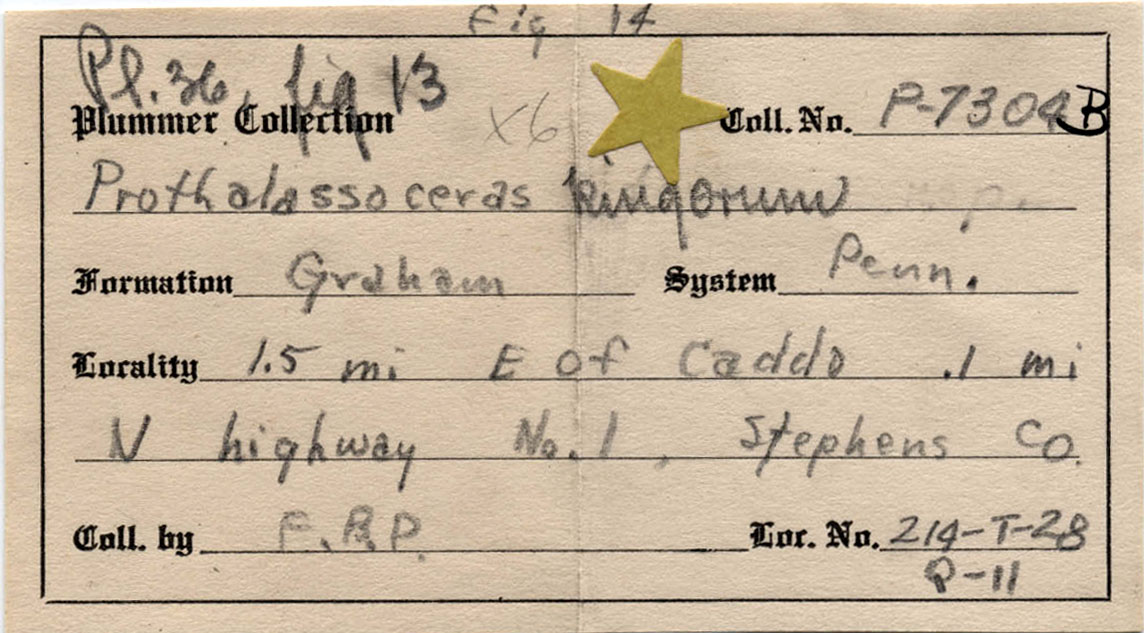 Fig 14
Pl. 36, fig 13
Plummer Collection x6 Coll. No. P-7304B
Prothalassoceras kingorum
Formation Graham System Penn.
Locality 1.5 mi E of Caddo .1 mi
N highway No. 1, Stephens Co.
Coll. by F.B.P. Loc. No. 214-T-28
P-11